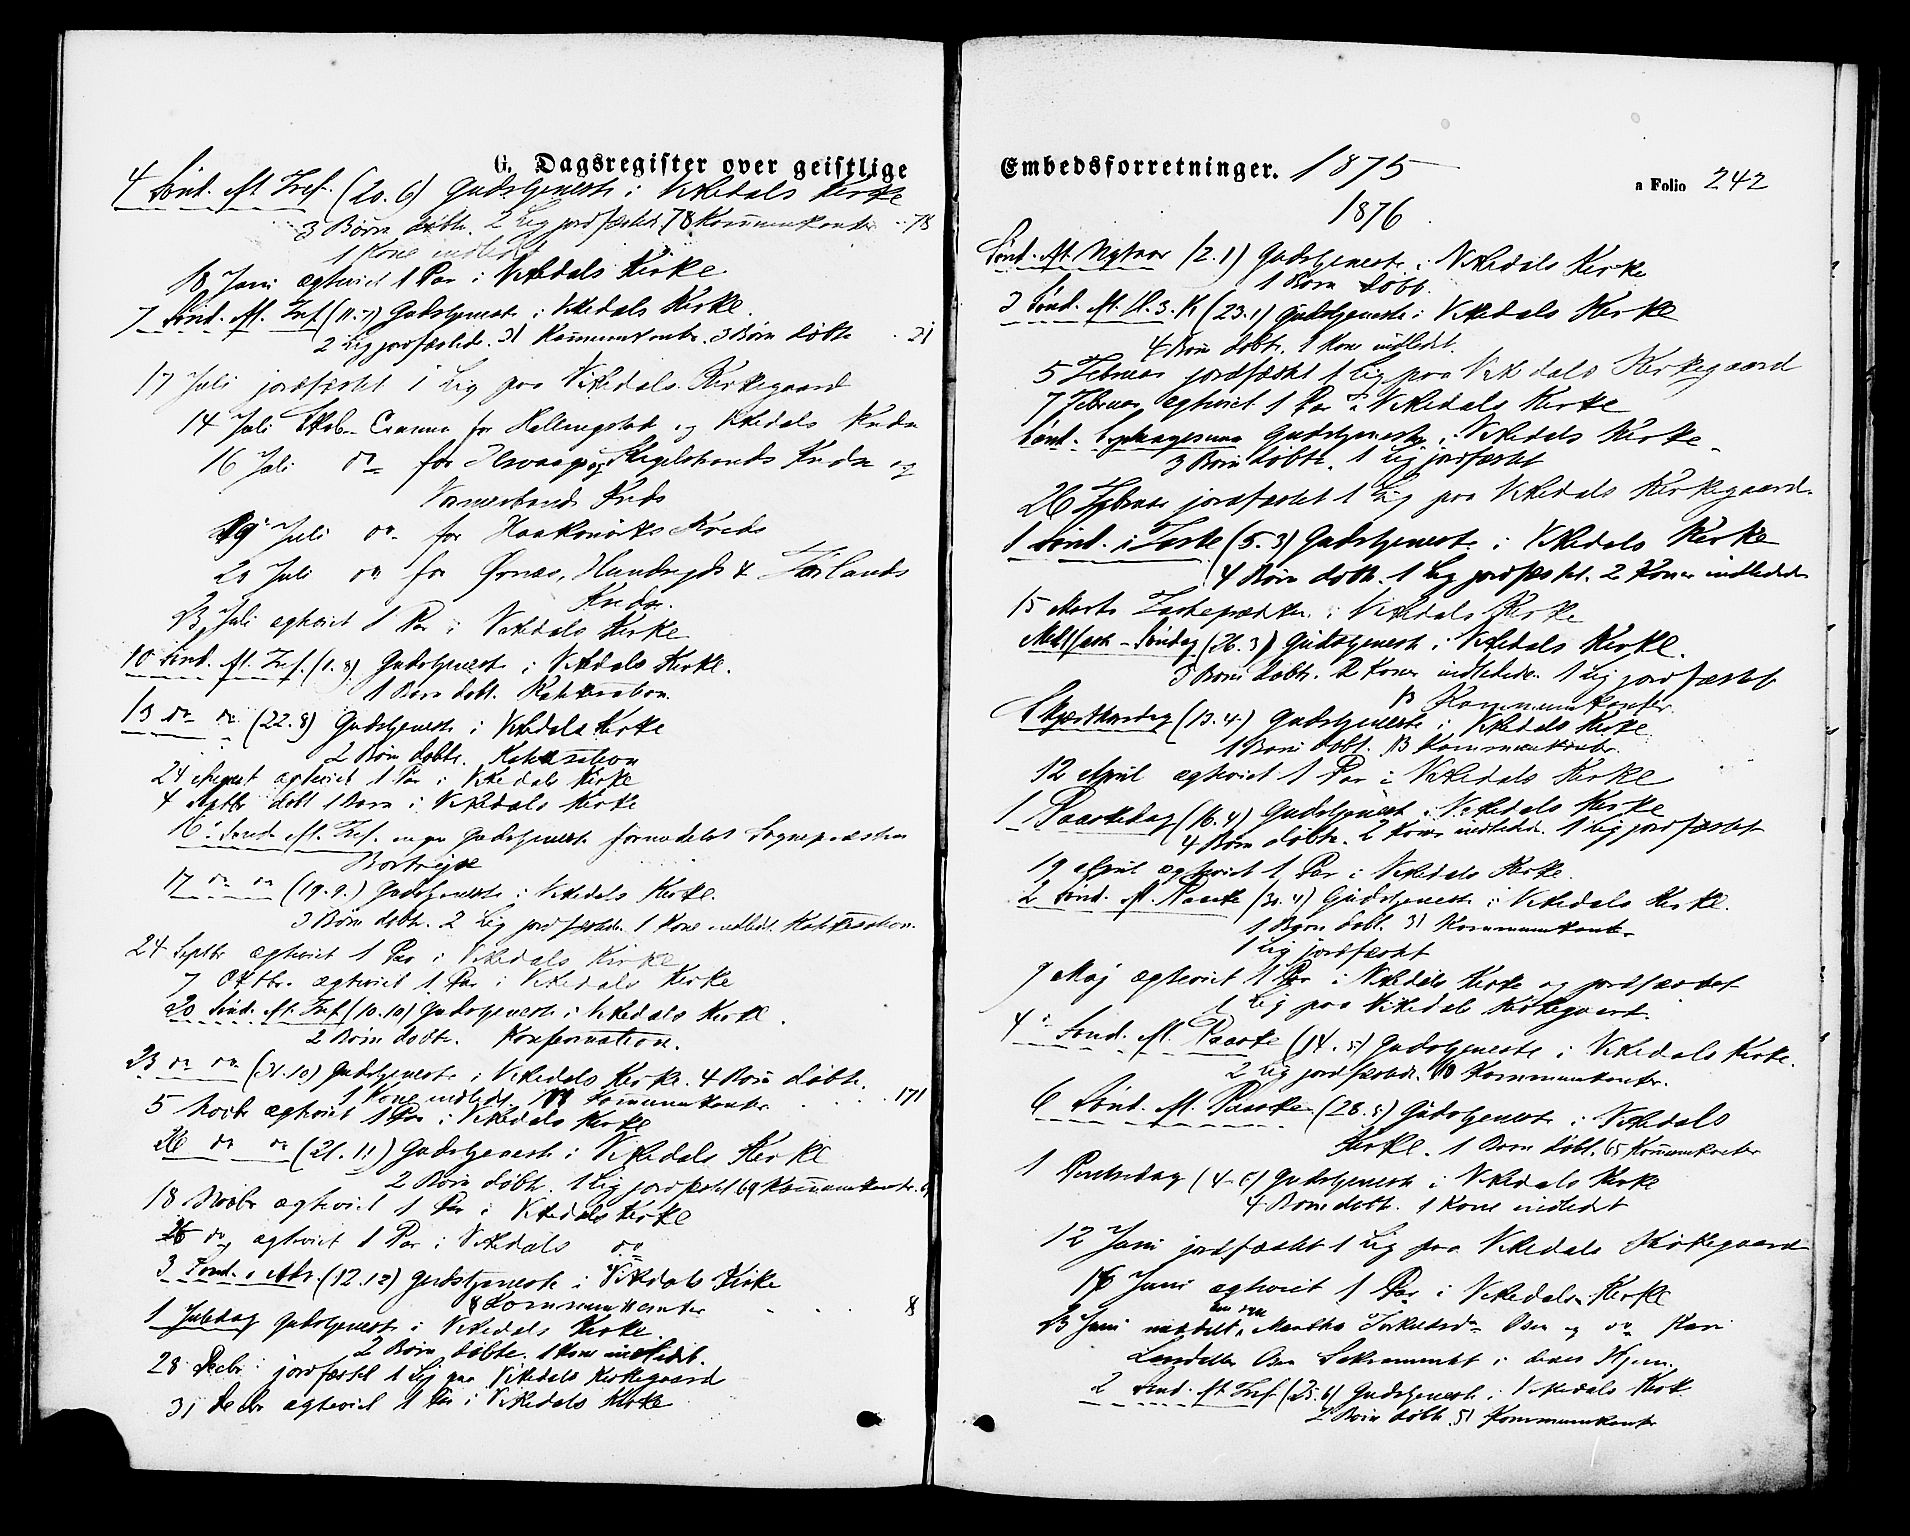 G. Dagsregister over geistlige
4 Sønd. eft. Tref. (20.6) Gudstjeneste i Vikedals Kirke
3 Børn døbte. 2 Lig jordfæstede 78 Kommunikanter .. 78
1 Kone indledt
18 Juni ægteviet 1 Par i Vikedals Kirke
7 Sønd. eft. Tref (11.7) Gudstjeneste i Vikedals Kirke.
2 Lig jordfæstede. 31 Kommunikanter. 3 Børn døbte . 31
17 Juli jordfæstet 1 Lig paa Vikedals Kirkegaard
14 Juli Skole Examen for Hallingstad og Vikedals Kredse
16 Juli do for og Kredse og
Kreds
19 Juli do for Kreds
Juli do for Ørnæs, &
Kredse.
23 Juli ægteviet 1 Par i Vikedals Kirke
10 Sønd. eft. Tref. (1.8) Gudstjeneste i Vikedals Kirke.
1 Barn døbt. Katekisation.
13 do do (22.8) Gudstjeneste i Vikedals Kirke
2 Børn døbte. Katekisation
24 August ægteviet 1 Par i Vikedals Kirke
4 Septbr døbt 1 Barn i Vikedals Kirke
16 Sønd. eft. Tref. ingen Gudstjeneste formedelst Sognepræstens
Bortreise
17 do do (19.9.) Gudstjeneste i Vikedals Kirke.
3 Børn døbte. 2 Lig jordfæstede. 1 Kone indledt. Katekisation.
24 Septbr ægteviet 1 Par i Vikedals Kirke
7 Oktbr. ægteviet 1 Par i Vikedals Kirke
20 Sønd. eft. Tref (10.10) Gudstjeneste i Vikedals Kirke.
2 Børn døbte. Konfirmation.
23 do do (31.10) Gudstjeneste i Vikedals Kirke. 4 Børn døbte.
1 Kone indledt. 171 Kommunikanter . . . 171
5 Novbr ægteviet 1 Par i Vikedals Kirke
26 do do (21.11) Gudstjeneste i Vikedals Kirke
2 Børn døbte. 1 Lig jordfæstet 69 Kommunikanter. 69
18 Novbr ægteviet 1 Par i Vikedals Kirke
26 do ægteviet 1 Par i Vikedals do
3 Sønd. i Adv. (12.12) Gudstjeneste i Vikedals Kirke
8 Kommunikanter . . . 8
1 Juledag Gudstjeneste i Vikedals Kirke.
2 Børn døbte. 1 Kone indledt.
28 Decbr jordfæstet 1 Lig paa Vikedals Kirkegaard
31 Decbr ægteviet 1 Par i Vikedals Kirke
Embedsforretninger. 1875
a Folio 242
1876
Sønd. eft. Nytaar (2.1) Gudstjeneste i Vikedals Kirke
1 Barn døbt.
3 Sønd. eft. H. 3. K (23.1) Gudstjeneste i Vikedals Kirke
4 Børn døbte. 1 Kone indledt.
5 Februar jordfæstet 1 Lig paa Vikedals Kirkegaard
7 Februar ægteviet 1 Par i Vikedals Kirke
Sønd. Septuagesima Gudstjeneste i Vikedals Kirke
3 Børn døbte. 1 Lig jordfæstet
26 Februar jordfæstet 1 Lig paa Vikedals Kirkegaard.
1 Sønd. i Faste (5.3) Gudstjeneste i Vikedals Kirke
4 Børn døbte. 1 Lig jordfæstet. 2 Koner indledede
15 Marts Fasteprædiken i Vikedals Kirke
Midfaste-Søndag (26.3) Gudstjeneste i Vikedals Kirke.
3 Børn døbte. 2 Koner indledede. 1 Lig jordfæstet
13 Kommunikanter.
Skjærthorsdag (13.4.) Gudstjeneste i Vikedals Kirke
1 Barn døbt. 13 Kommunikanter.
12 April ægteviet 1 Par i Vikedals Kirke
1 Paaskedag (16.4) Gudstjeneste i Vikedals Kirke
4 Børn døbte. 2 Koner indledede. 1 Lig jordfæstet
19 April ægteviet 1 Par i Vikedals Kirke.
2 Sønd. eft. Paaske (30.4) Gudstjeneste i Vikedals Kirke.
1 Barn døbt. 31 Kommunikanter
1 Lig jordfæstet
7 Maj ægteviet 1 Par i Vikedals Kirke og jordfæstet
1 Lig paa Vikedals Kirkegaard.
4 Sønd. eft. Paaske (14.5) Gudstjeneste i Vikedals Kirke.
2 Lig jordfæstede. Kommunikanter.
6 Sønd. eft. Paaske (28.5) Gudstjeneste i Vikedals
Kirke. 1 Barn døbt. 65 Kommunikanter
1 Pintsedag (4.6) Gudstjeneste i Vikedals Kirke
4 Børn døbte. 1 Kone indledet
12 Juni jordfæstet 1 Lig paa Vikedals Kirkegaard
16 Juni ægteviet 1 Par i Vikedals Kirke
23 Juni meddelt den syge Martha Torkildsdr Øsen og do Kari
Øsen Sakramentet i deres Hjem.
2 Sønd. eft. Tref (25.6) Gudstjeneste i Vikedals Kirke
2 Børn døbte. 51 Kommunikanter